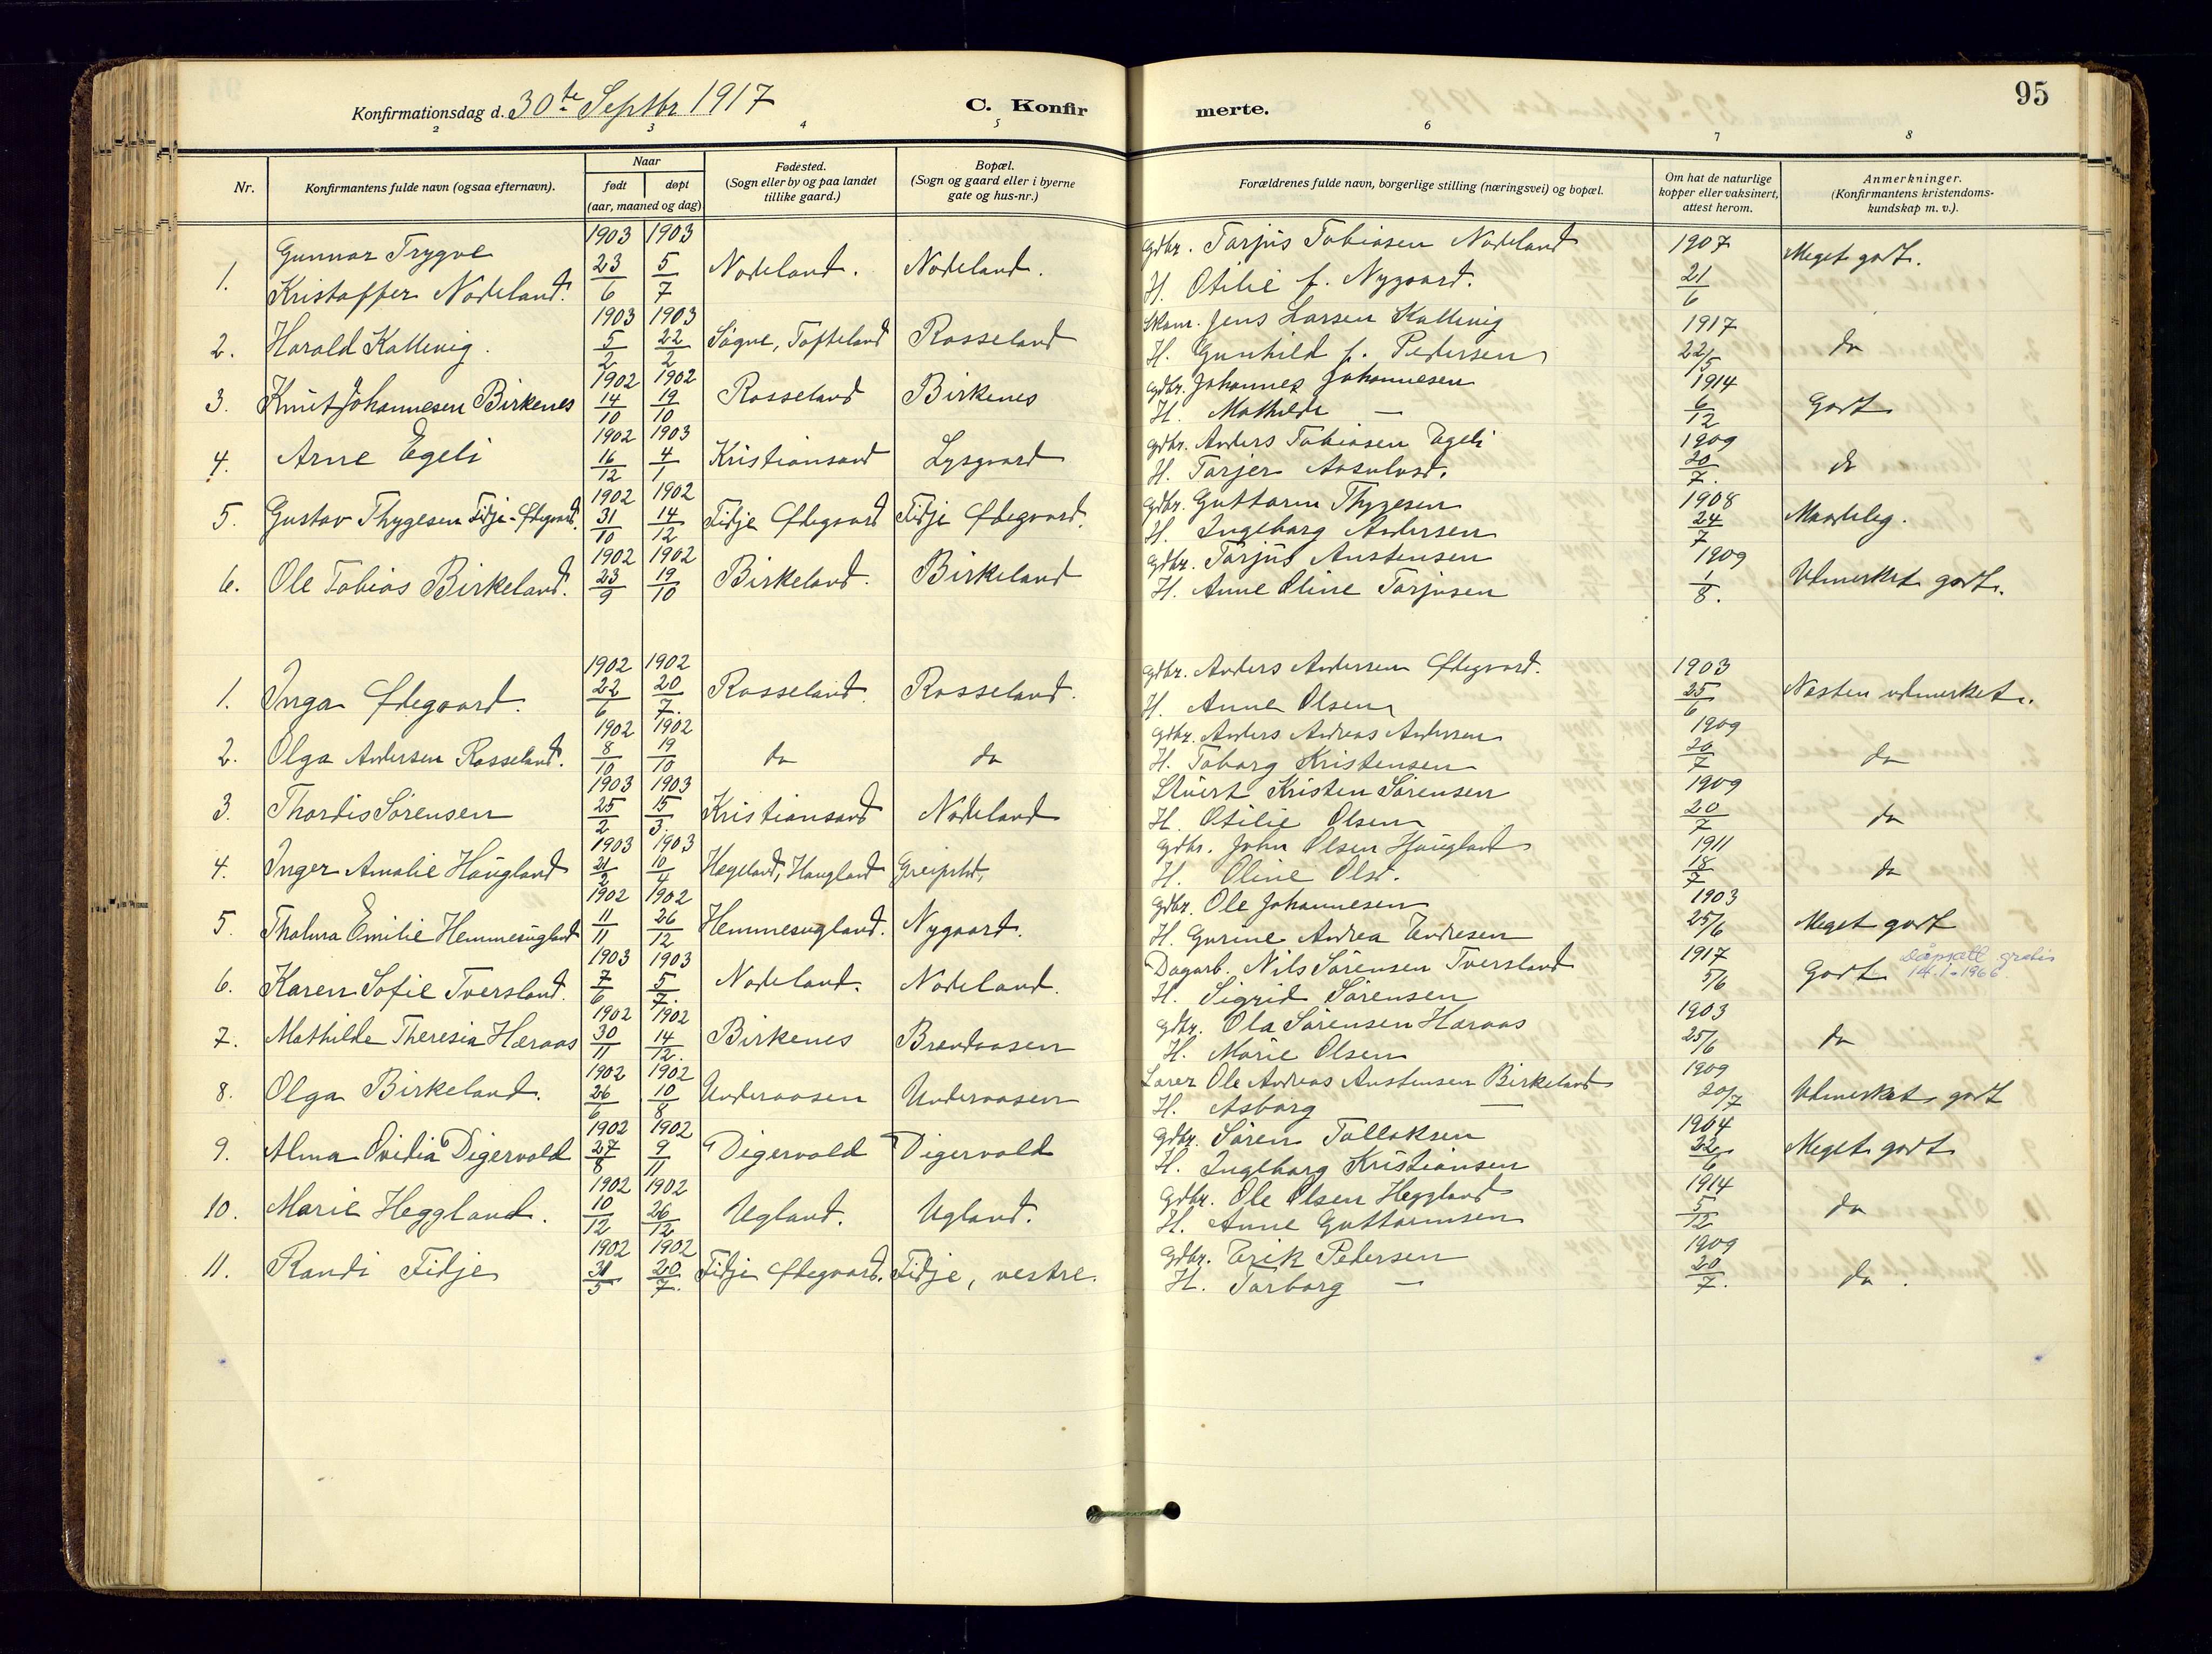 95
Konfirmationsdag d. 30te Septbr 1917
C. Konfirmerte.
2 3 4 5 6 7 8
Nr.
Konfirmantens fulde navn (ogsaa efternavn).
Naar
født døpt
(aar, maaned og dag)
Fødested.
(Sogn eller by og paa landet
tillike gaard.)
Bopæl.
(Sogn og gaard eller i byerne
gate og hus-nr.)
Forældrenes fulde navn, borgerlige stilling (næringsvei) og bopæl.
Om hat de naturlige
kopper eller vaksinert,
attest herom.
Anmerkninger.
(Konfirmantens kristendoms-
kundskap m. v.).
1. Gunnar Trygve Kristoffer Nodeland. 1903 23/6 1903 5/7 Nodeland. Nodeland. Gdbr. Tarjus Tobiasen Nodeland H. Otilie f. Nygaard. 1907 21/6 Meget godt.
2. Harald Kallevig. 1903 5/2 1903 22/2 Søgne, Tofteland Rosseland Jens Larsen Kallevig H. Gunhild f. Pedersen 1917 22/5 do
3. Knut Johannesen Birkenes 1902 14/10 1902 19/10 Rosseland Birkenes gdbr. Johannes Johannesen H. Mathilde — 1914 6/12 Godt
4. Arne Egeli 1902 16/12 1903 4/1 Kristiansand Lysgaard gdbr. Anders Tobiasen Egeli H. Tarjer Aasulvsd. 1909 20/7. do
5. Gustav Thygesen Fidje-Ødegaard. 1902 31/10 1902 14/12 Fidje Ødegaard Fidje Ødegaard. gdbr. Guttorm Thygesen H. Ingeborg Andersen 1908 24/7 Maadelig.
6. Ole Tobias Birkeland. 1902 23/9 1902 19/10 Birkeland. Birkeland gdbr. Tarjus Austensen H. Anne Oline Tarjusen 1909 1/8. Udmerket godt.
1. Inga Ødegaard. 1902 22/6 1902 20/7. Rosseland. Rosseland. gdbr. Anders Andersen Ødegaard. H. Anne Olsen 1903 25/6 Næsten udmerket.
2. Olga Andersen Rosseland. 1902 8/10 1902 19/10 do do gdbr. Anders Andreas Andersen H. Taborg Kristensen 1909 20/7 do
3. Thordis Sørensen 1903 25/2 1903 15/3. Kristiansand Nodeland Stuert Kristen Sørensen H. Otilie Olsen 1909 20/7 do
4. Inger Amalie Haugland 1903 21/2 1903 10/4 Hegeland, Haugland Greipstd. gdbr. John Olsen Haugland H. Oline Olsd. 1911 18/7 do
5. Thalma Emilie Hemmesugland 1902 11/11 1902 26/12 Hemmesugland. Nygaard. gdbr. Ole Johannesen H. Gurine Andrea Endresen 1903 25/6 Meget godt
6. Karen Sofie Tversland. 1903 7/6 1903 5/7. Nodeland. Nodeland. Dagarb. Nils Sørensen Tversland H. Sigrid Sørensen 1917 5/6 Godt Dåpsatt. gratis 14.1.-1966
7. Mathilde Theresia Høraas 1902 30/11 1902 14/12. Birkenes Brandaasen gdbr. Ola Sørensen Høraas H. Marie Olsen 1903 25/6 do
8. Olga Birkeland. 1902 26/6 1902 10/8 Underaasen Underaasen Lærer Ole Andreas Austensen Birkeland H. Asborg — 1909 20/7 Udmerket godt
9. Alma Ovidia Digervold 1902 27/8 1902 9/11 Digervold Digervold gdbr. Søren Tallaksen H. Ingeborg Kristiansen 1904 22/6 Meget godt
10. Marie Heggland. 1902 10/12 1902 26/12 Ugland. Ugland. gdbr. Ole Olsen Heggland H. Anne Guttormsen 1914 5/12 do
11. Randi Fidje 1902 31/5 1902 20/7. Fidje Ødegaard. Fidje, vestre. gdbr. Erik Petersen H. Tarborg — 1909 20/7. do.